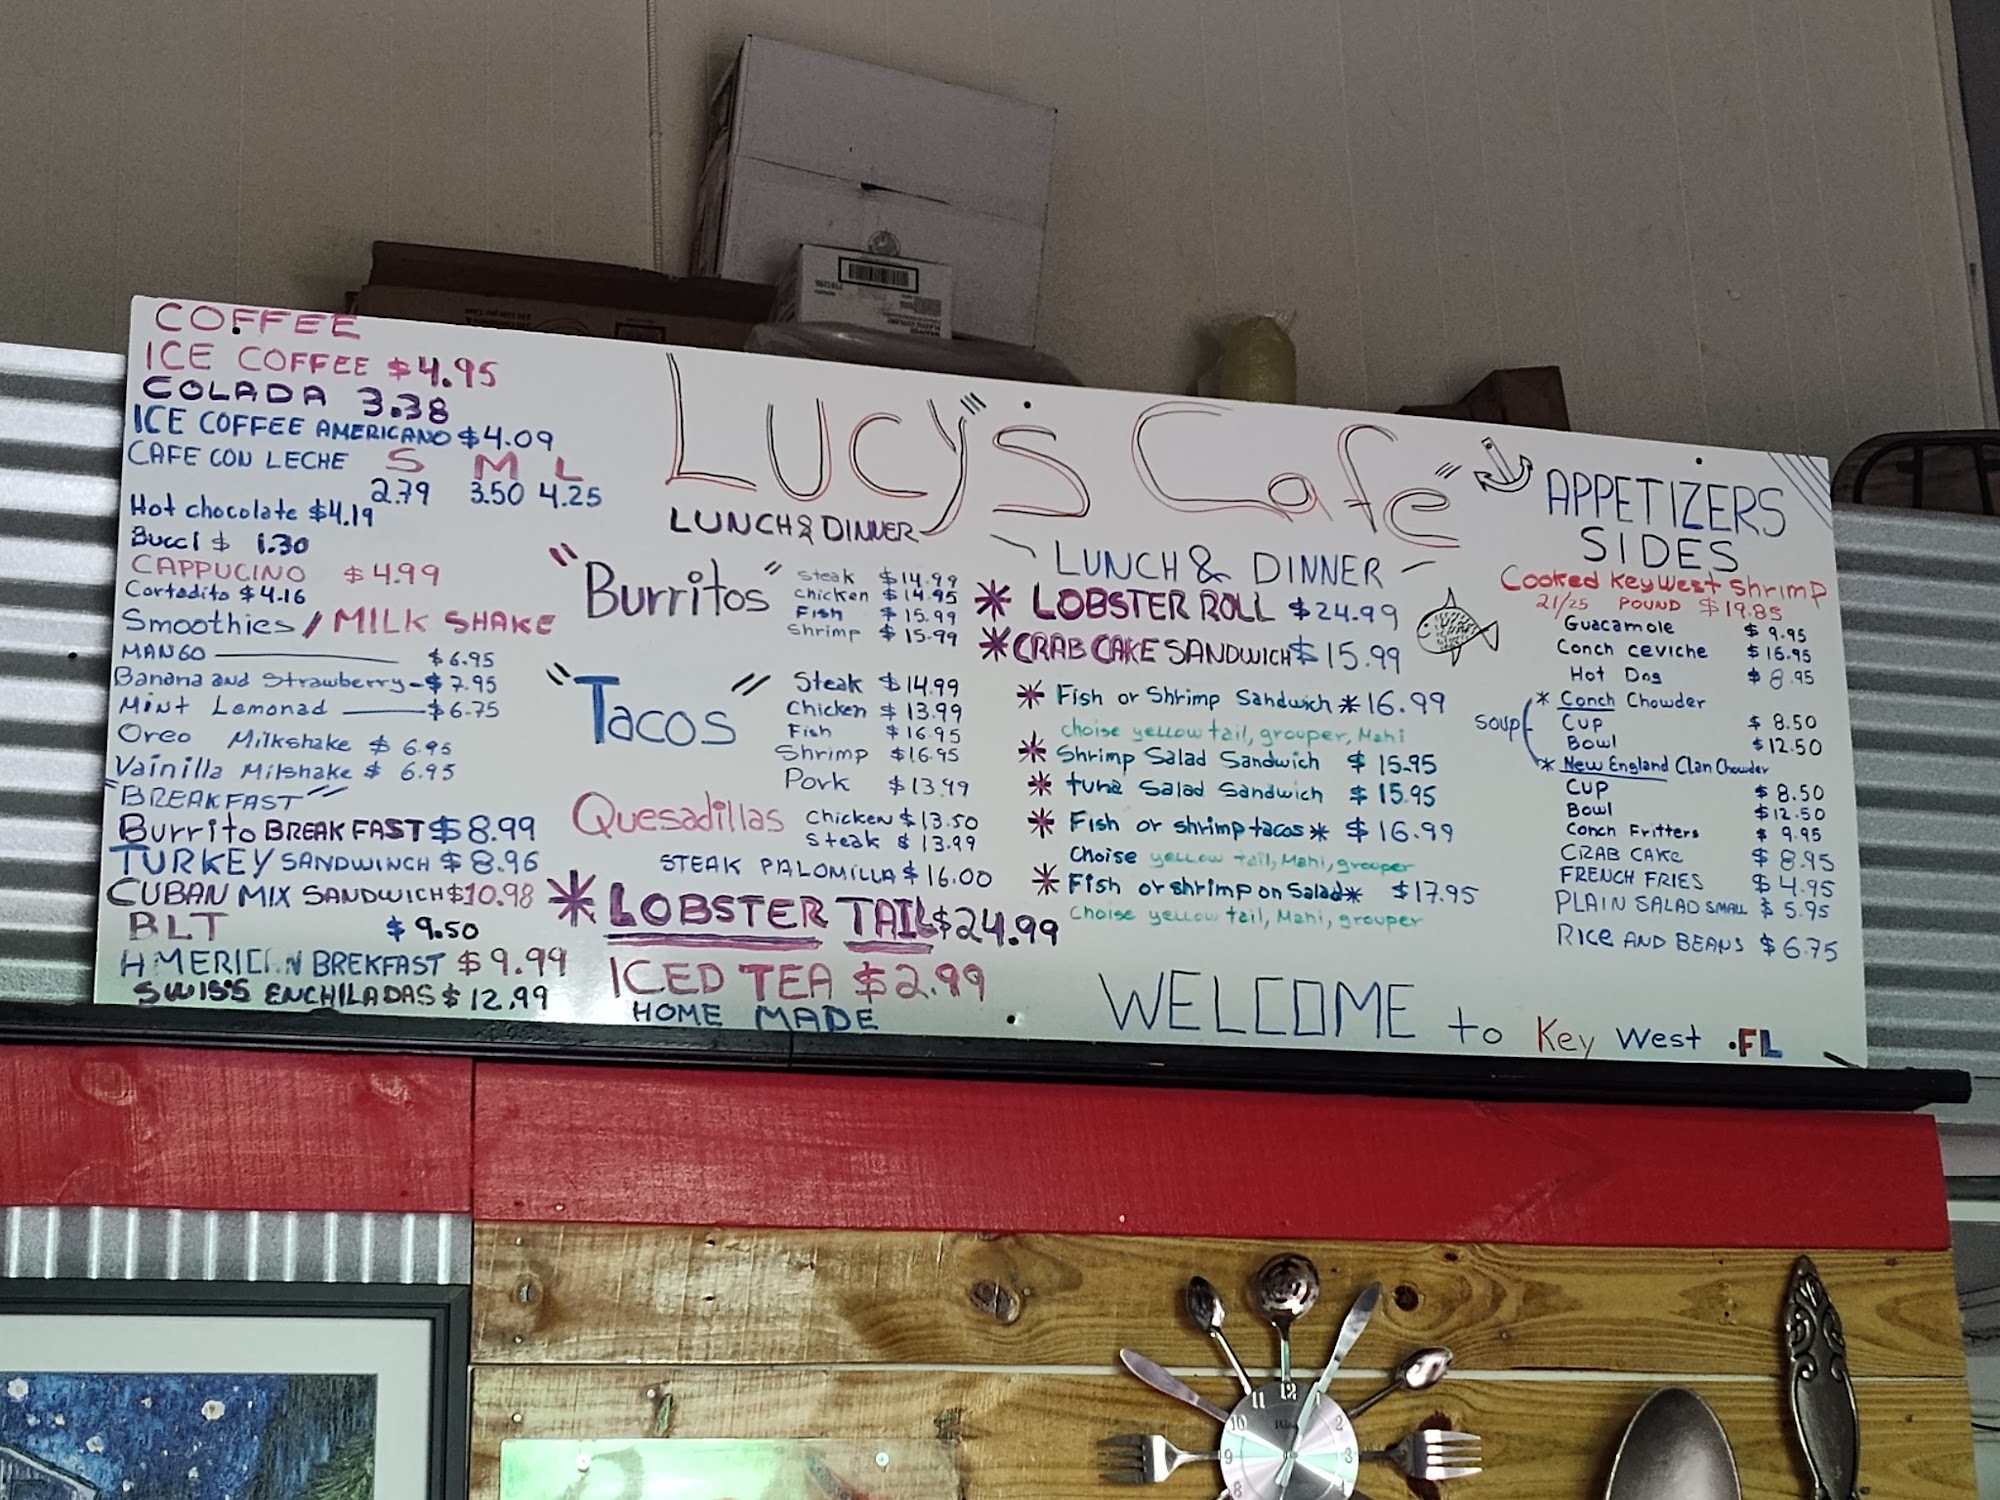 COFFEE
ICE COFFEE $4.95
COLADA 3.38
ICE COFFEE AMERICANO $4.09
CAFE CON LECHE S M L
2.79 3.50 4.25
Hot chocolate $4.19
Bucci $ 1.30
CAPPUCINO $4.99
Cortadito $4.16
Smoothies / MILK SHAKE
MANGO $6.95
Banana and Strawberry - $7.95
Mint Lemonad $6.75
Oreo Milkshake $ 6.95
Vainilla Milshake $ 6.95
"BREAKFAST"
Burrito BREAKFAST $8.99
TURKEY SANDWINCH $8.96
CUBAN MIX SANDWICH $10.98
BLT $9.50
AMERICAN BREKFAST $9.99
SWISS ENCHILADAS $12.99
Lucy's Cafe
LUNCH & DINNER
"Burritos"
Steak $14.99
Chicken $14.95
Fish $15.99
Shrimp $15.99
"Tacos"
Steak $14.99
Chicken $13.99
Fish $16.95
Shrimp $16.95
Pork $13.99
Quesadillas
Chicken $13.50
Steak $13.99
STEAK PALOMILLA $16.00
* LOBSTER TAIL $24.99
ICED TEA $2.99
HOME MADE
LUNCH & DINNER
* LOBSTER ROLL $24.99
* CRAB CAKE SANDWICH $15.99
* Fish or Shrimp Sandwich * 16.99
choise yellow tail, grouper, Mahi
* Shrimp Salad Sandwich $15.95
* tuna Salad Sandwich $15.95
* Fish or shrimp tacos * $16.99
Choise yellow tail, Mahi, grouper
* Fish or shrimp on Salad * $17.95
Choise yellow tail, Mahi, grouper
WELCOME to Key West .FL
APPETIZERS
SIDES
Cooked Key West Shrimp
21/25 POUND $19.85
Guacamole $9.95
Conch ceviche $16.95
Hot Dog $8.95
Soup
* Conch Chowder
Cup $8.50
Bowl $12.50
* New England Clan Chowder
Cup $8.50
Bowl $12.50
Conch Fritters $9.95
CRAB CAKE $8.95
FRENCH FRIES $4.95
PLAIN SALAD SMALL $5.95
RICE AND BEANS $6.75
11 12
10 2
9 3
8